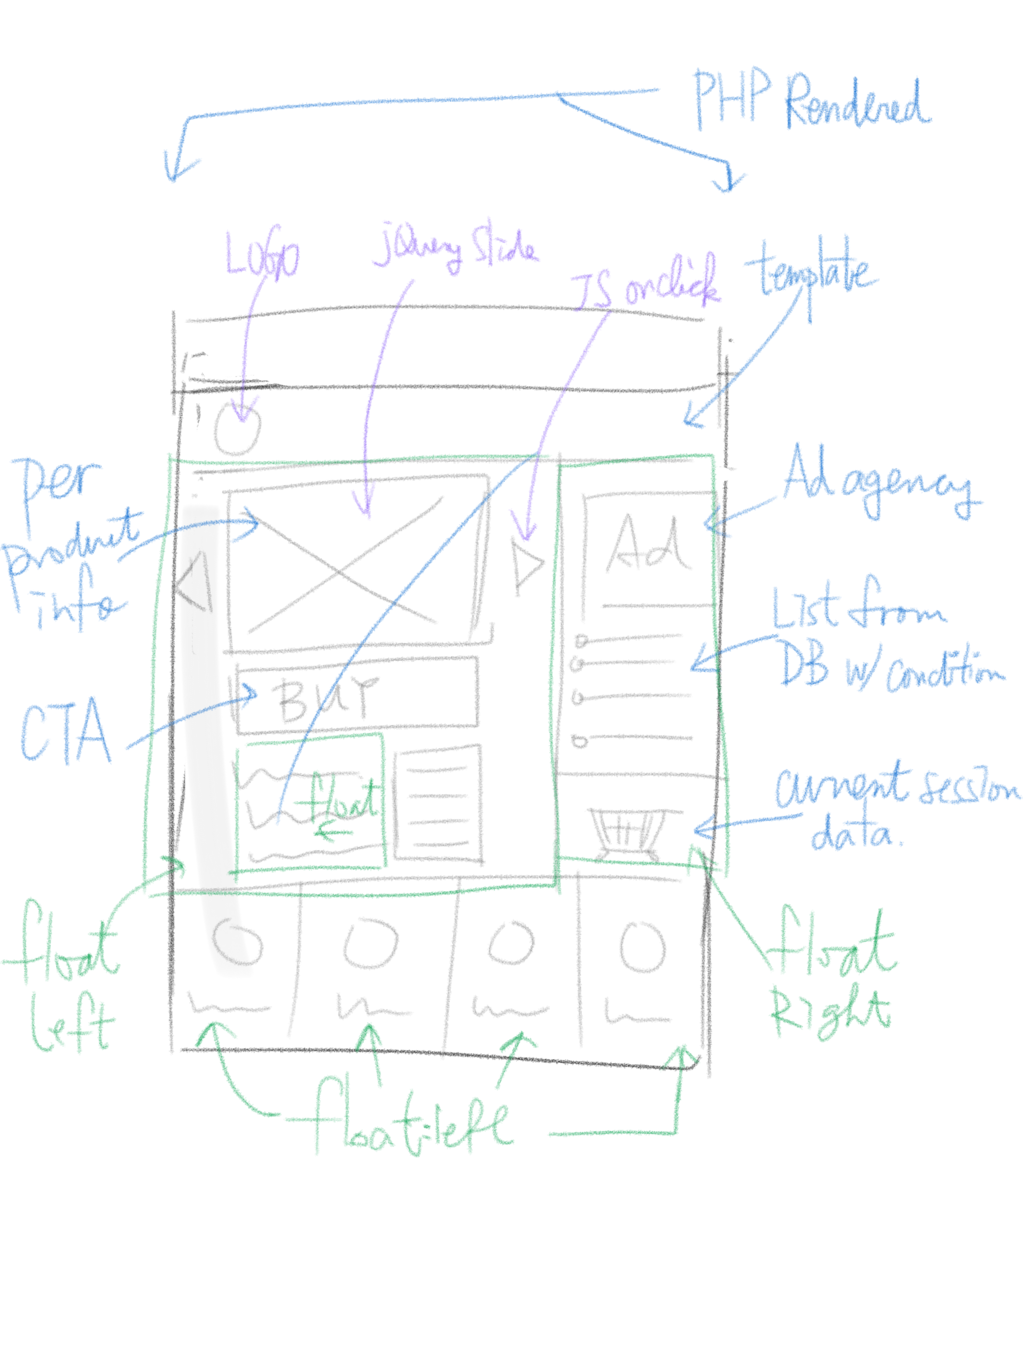 PHP Rendered
LOGO
jQuery Slide
JS onclick
template
per
product
info
Ad agency
Ad
List from
DB w/ condition
CTA
BUY
float
current session
data.
float
left
float
Right
float:left